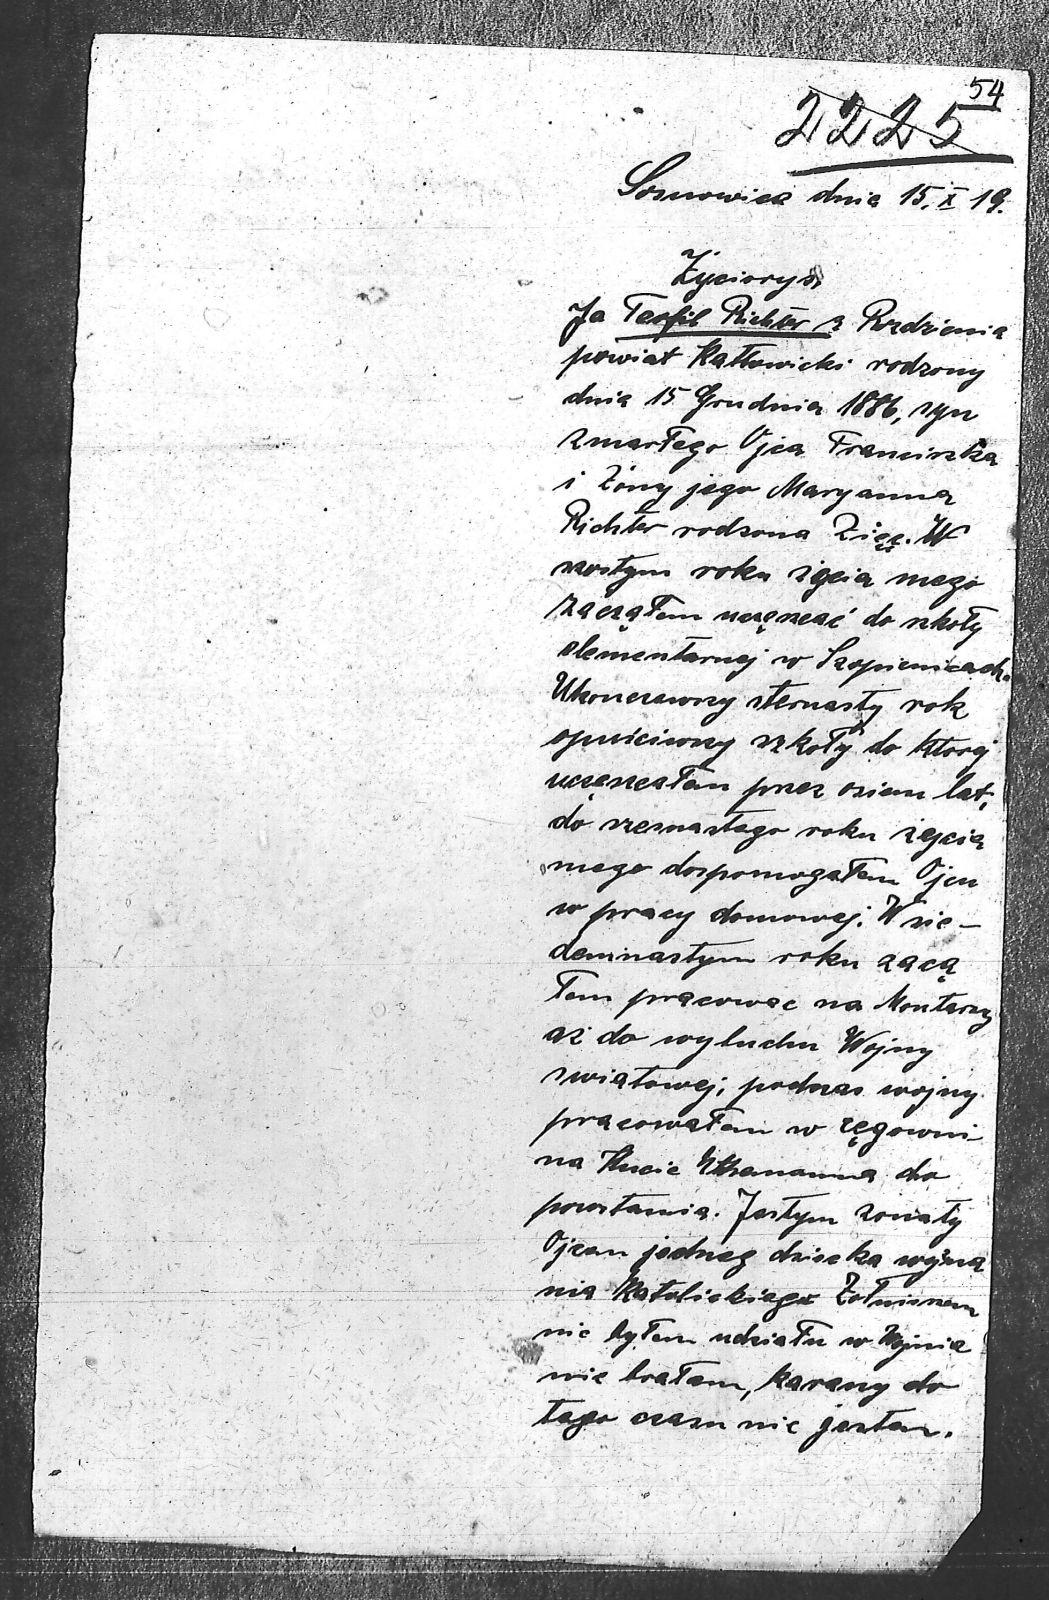 54
2225
Sosnowica dnia 15. X 19.
Życiorys
Ja Teofil Richter z Rozdzienia
powiat Kattowicki rodzony
dnia 15 Grudnia 1886, syn
zmarłego Ojca Franciszka
i Żóny jego Maryanna
Richter rodzona W
szostym roku życia mego
zacząłem uczęszać do szkoły
elementarnej w Szopienicach.
Ukonczawszy sternasty rok
opuściwszy szkoły do ktorej
uczęszczałem przez osiem lat,
do szesnastego roku życia
mego dospomogałem Ojcu
w pracy domowej. W sie-
demnastym roku zacą
łem pracowac na Montarzy
aż do wybuchu Wojny
swiatowej, podczas wojny
pracowałem w
na Hucie do
powstania. Jestym zonaty
Ojcem jedneg dziecka wyzna
nia Katolickiego Żołniszem
nie byłem udziału w Wojnie
nie brałem, karany do
tego czasu nie jestem.